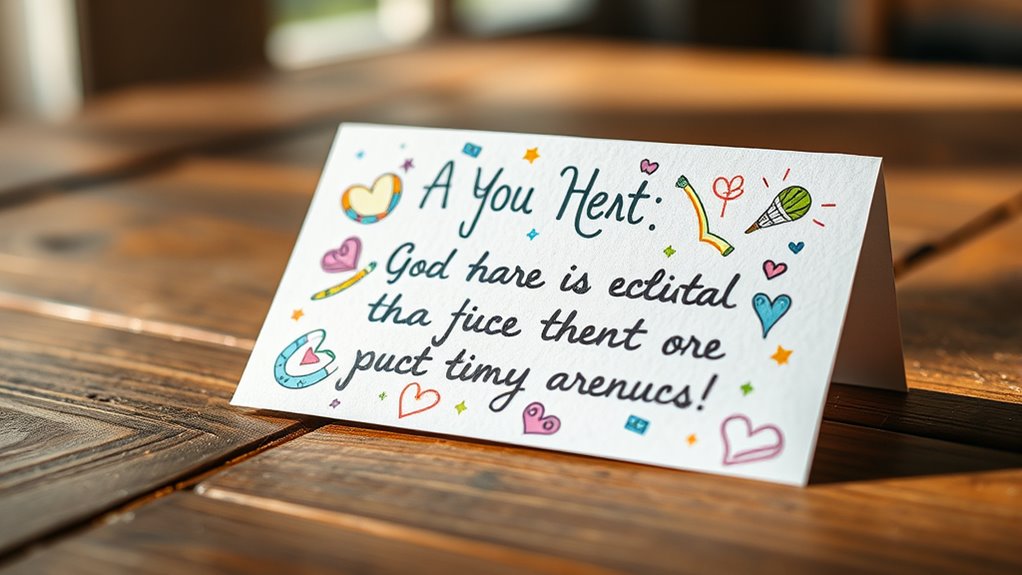 A You Hent:
God hare is eclutal
tha fuce thent ore
puct timy arenucs!